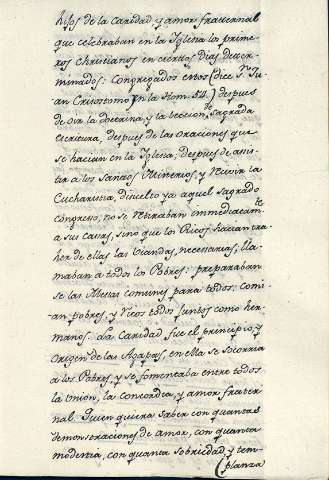 hijos de la caridad y amor fraternal
que celebraban en la Iglesia los prime-
ros Christianos en ciertos dias deter-
minados: Congregados estos (dice Sn. Ju-
an Crisostomo en la Hom. 54.) despues
de oir la doctrina, y la leccion de Sagrada
escritura, despues de las oraciones que
se hacian en la Iglesia, despues de asis-
tir a los Santos Misterios, y recivir la
Eucharistia, disuelto ya aquel Sagrado
Congreso, no se retiraban immediacamte
a sus casas, sino que los Ricos hacian tra-
her de ellas las viandas, necesarias; lla-
maban a todos los Pobres: preparaban
se las Mesas comunes para todos: Comi-
an pobres, y Ricos todos juntos como her-
manos: La Caridad fue el principio, y
Origen de las Agapas, en ella se Socorria
a los Pobres, y se fomentaba entre todos
la union, la concordia, y amor frater-
nal. Quien quiera saber con quantas
demonstraciones de amor, con quanta
modestia, con quanta sobriedad y tem-
(planza